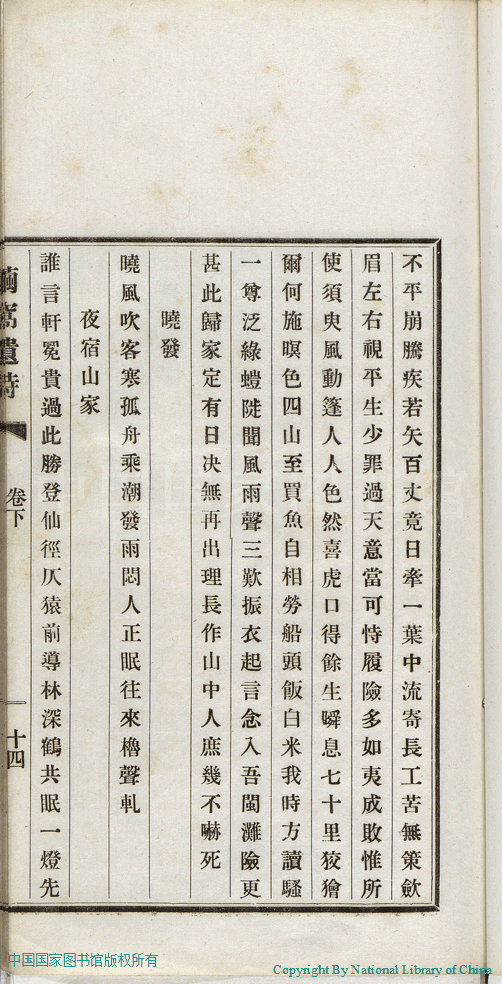 不平崩騰疾若矢百丈竟日牽一葉中流寄長工苦無策歛
眉左右視平生少罪過天意當可恃履險多如夷成敗惟所
使須臾風動篷人人色然喜虎口得餘生瞬息七十里狡獪
爾何施暝色四山至買魚自相勞船頭飯白米我時方讀騷
一尊泛綠螘陡聞風雨聲三歎振衣起言念入吾閩灘險更
甚此歸家定有日决無再出理長作山中人庶幾不嚇死
曉發
曉風吹客寒孤舟乘潮發雨悶人正眠往來櫓聲軋
夜宿山家
誰言軒冕貴過此勝登仙徑仄猿前導林深鶴共眠一燈先
遺詩
卷下
十四
中国国家图书馆版权所有
Copyright By National Library of China